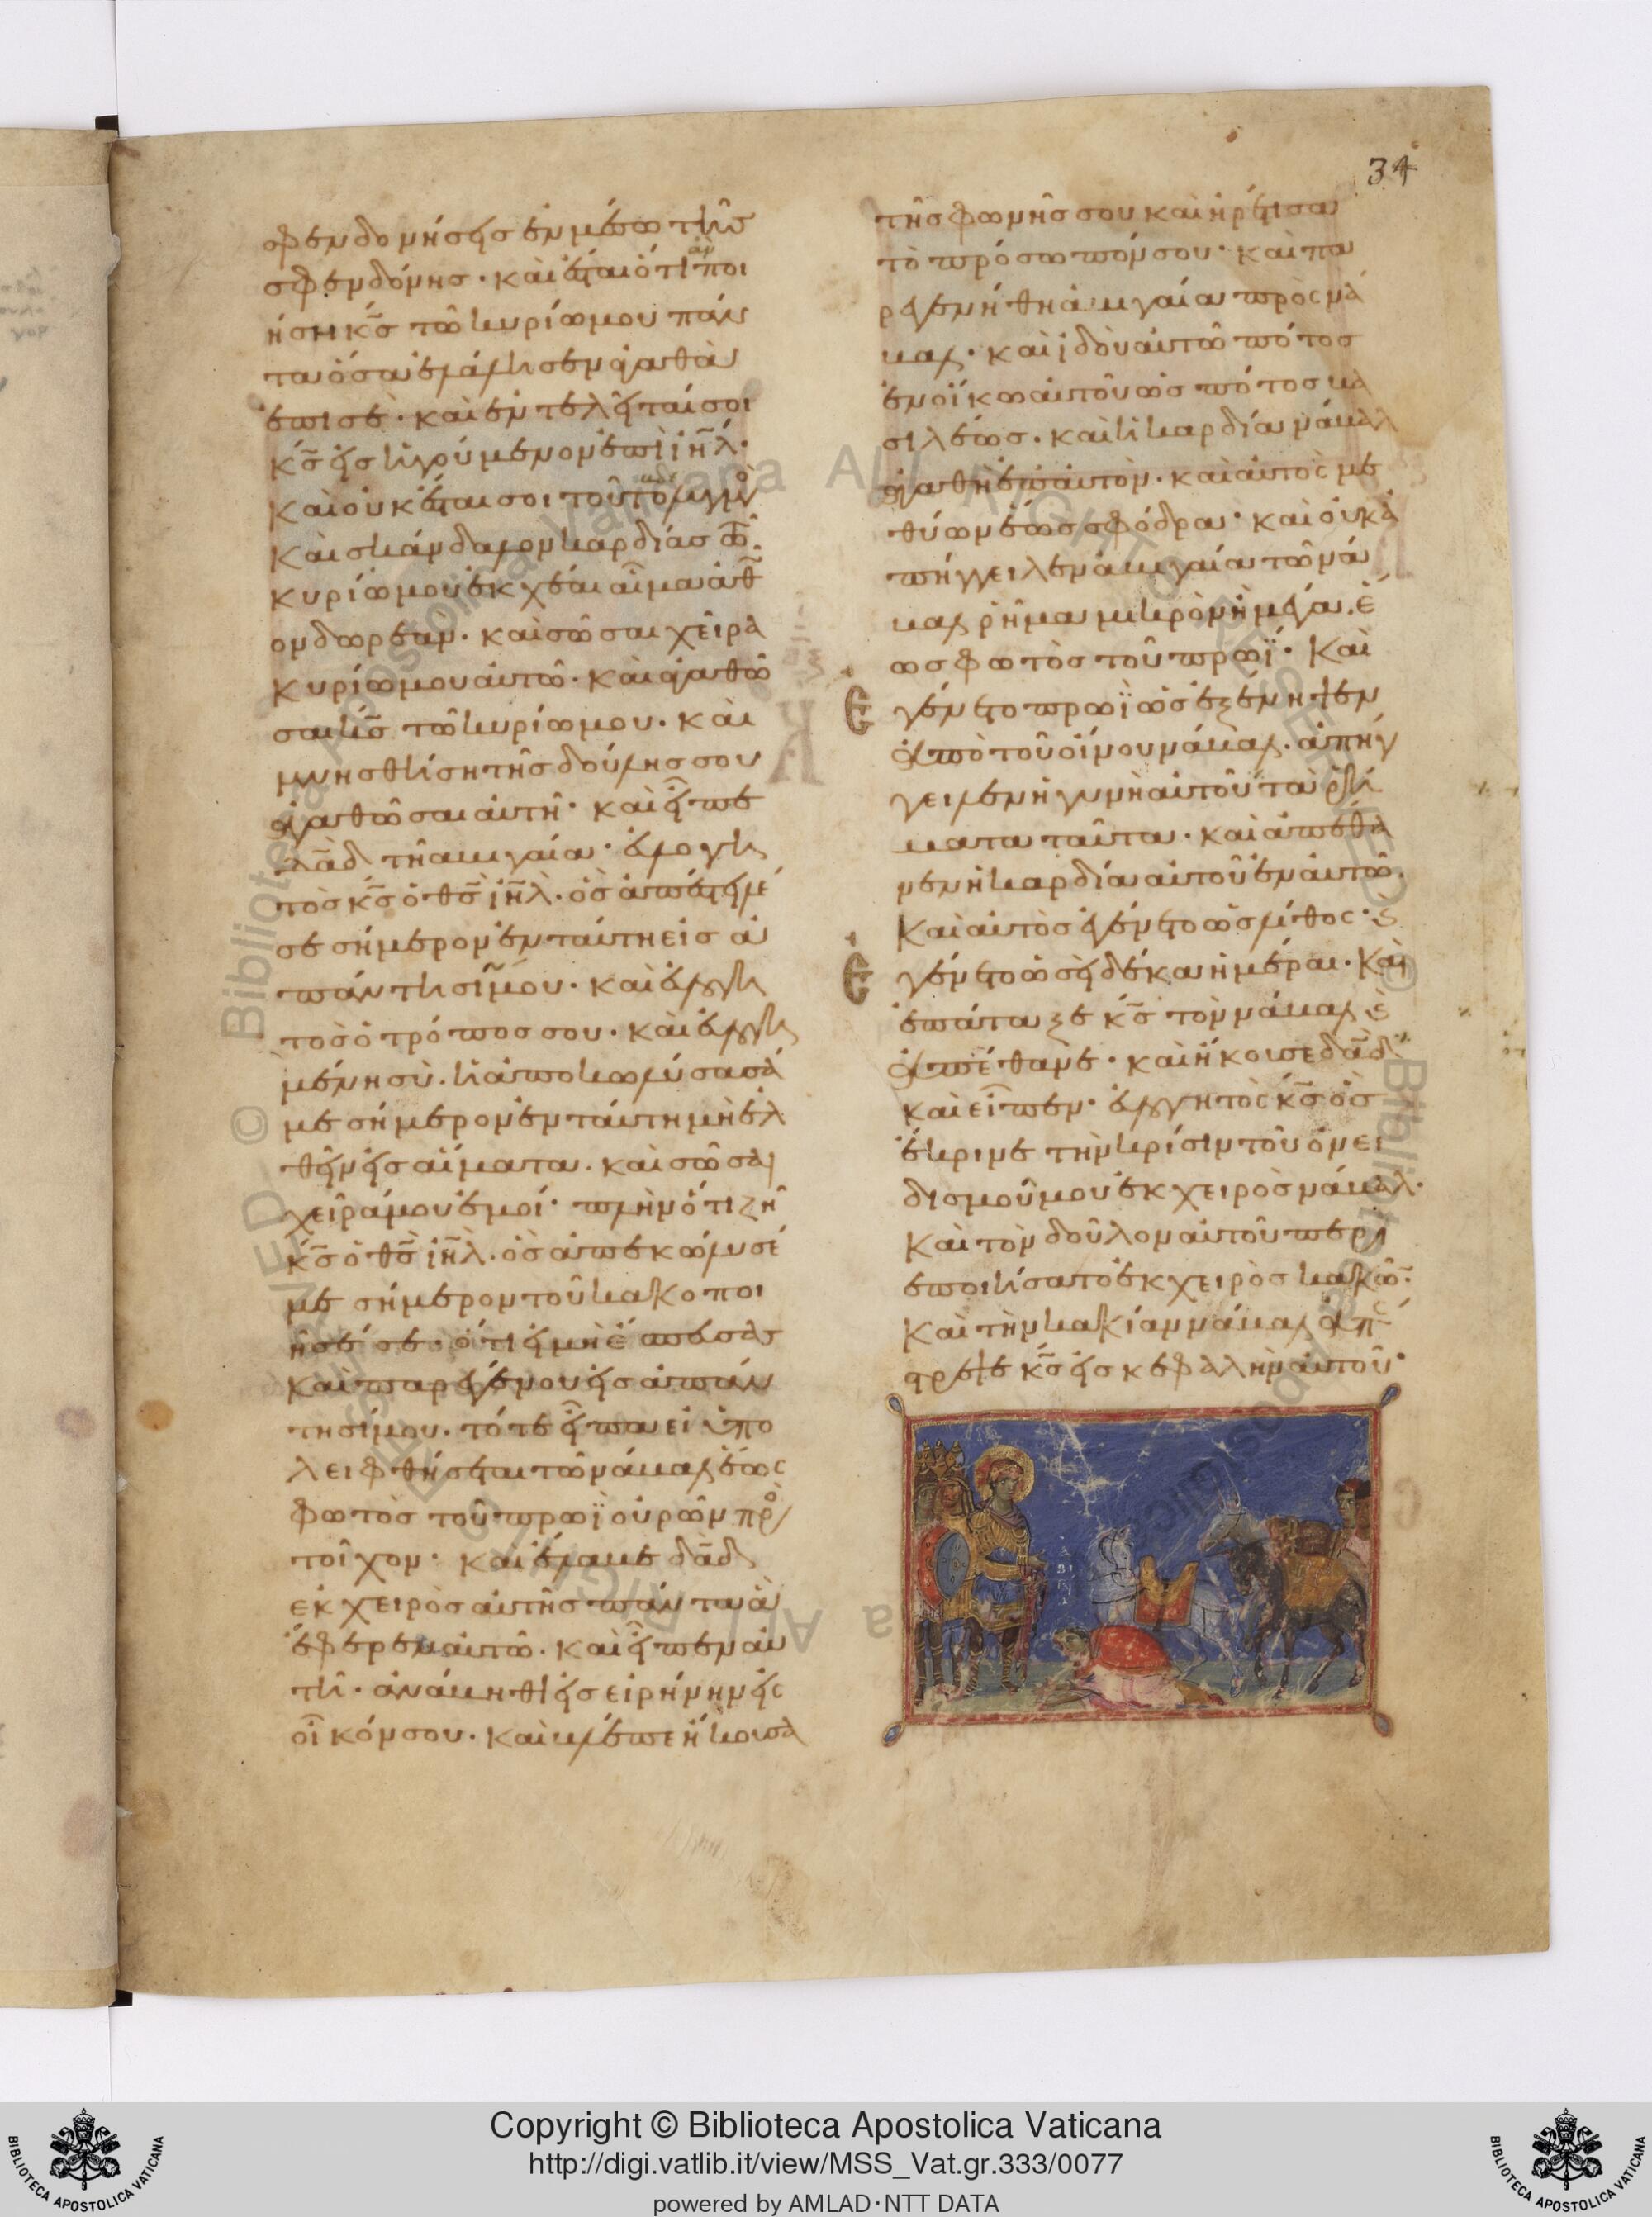 34
σφενδονήσεις ἐν μέσω τῆς
σφενδόνης· καὶ ἔσται ὅτι ἂν ποι
ήση κ̅ς τῶ κυρίω μου πάν
τα ὅσα ἐλάλησεν ἀγαθὰ
ἐπὶ σὲ· καὶ ἐντελεῖταί σοι
κ̅ς εἰς ἡγούμενον ἐπὶ ι̅η̅λ·
καὶ οὐκ ἔσται σοι τοῦτο
καὶ σκάνδαλον καρδίας τῶ
κυρίω μου ἐκχέαι αἷμα ἀθῶ
ον δωρεάν· καὶ σῶσαι χεῖρα
κυρίω μου αὐτῶ· καὶ ἀγαθῶ
σαι κ̅ς τῶ κυρίω μου· καὶ
μνησθήση τῆς δούλης σου
ἀγαθῶσαι αὐτῆ· καὶ εἶπε
δ̅α̅δ τῆ ἀβιγαία· εὐλογη
τὸς κ̅ς ὁ θ̅ς ι̅η̅λ· ὃς ἀπέστειλέ
σε σήμερον ἐν ταύτη εἰς ἀ
πάντησίν μου· καὶ εὐλογη
τὸς ὁ τρόπος σου· καὶ εὐλογη
μένη σὺ· ἡ ἀποκωλύσασά
με σήμερον ἐν ταύτη μὴ ἐλ
θεῖν εἰς αἵματα· καὶ σῶσαι
χεῖρά μου ἐμοί· πλὴν ὅτι ζῆ
κ̅ς ὁ θ̅ς ι̅η̅λ· ὃς ἀπεκώλυσέ
με σήμερον τοῦ κακοποι
ῆσέ σε· ὅτι εἰ μὴ ἔσπευσας
καὶ παρεγένου εἰς ἀπάν
τησίμου· τότε εἶπα εἰ ὑπο
λειφθήσεται τῶ νάβαλ ἕως
φωτὸς τοῦ πρωῒ οὐρῶν πρὸς
τοῖχον· καὶ ἔλαβε δ̅α̅δ
ἐκ χειρὸς αὐτῆς πάντα ἃ
ἔφερεν αὐτῶ· καὶ εἶπεν αὐ
τῆ· ἀνάβηθι εἰς εἰρήνην εἰς
οἶκόν σου· καὶ βλέπε ἤκουσα
τῆς φωνῆς σου καὶ ἡρέτισα
τὸ πρόσωπόν σου· καὶ πα
ρεγενήθη ἀβιγαία πρὸς νά
βαλ· καὶ ἰδοὺ αὐτῶ πότος
ἐν οἴκω αὐτοῦ ὡς πότος βα
σιλέως· καὶ ἡ καρδία νάβαλ
ἀγαθὴ ἐπ' αὐτὸν· καὶ αὐτὸς με
θύων ἕως σφόδρα· καὶ οὐκ ἀ
πήγγειλεν ἀβιγαία τῶ νά
βαλ ῥῆμα μικρὸν ἢ μέγα· ἕ
ως φωτὸς τοῦ πρωΐ· Καὶ
Ἐγένετο πρωῒ ὡς ἐξένηψεν
ἀπὸ τοῦ οἴνου νάβαλ· ἀπήγ
γειλεν ἡ γυνὴ αὐτοῦ τὰ ῥή
ματα ταῦτα· καὶ ἀπέθα
νεν ἡ καρδία αὐτοῦ ἐν αὐτῶ·
καὶ αὐτὸς ἐγένετο ὡς λίθος· Καὶ
Ἐγένετο ὡσεὶ δέκα ἡμέραι· καὶ
ἐπάταξε κ̅ς τὸν νάβαλ καὶ
ἀπέθανε· καὶ ἤκουσε δ̅α̅δ
καὶ εἶπεν· εὐλογητὸς κ̅ς ὃς
ἔκρινε τὴν κρίσιν τοῦ ὀνει
δισμοῦ μου ἐκ χειρὸς νάβαλ·
καὶ τὸν δοῦλον αὐτοῦ περι
εποιήσατο ἐκ χειρὸς κακῶν·
καὶ τὴν κακίαν νάβαλ ἀπέ
στρεψε κ̅ς εἰς κεφαλὴν αὐτοῦ·
Copyright © Biblioteca Apostolica Vaticana
http://digi.vatlib.it/view/MSS_Vat.gr.333/0077
powered by AMLAD·NTT DATA
BIBLIOTECA APOSTOLICA VATICANA
BIBLIOTECA APOSTOLICA VATICANA